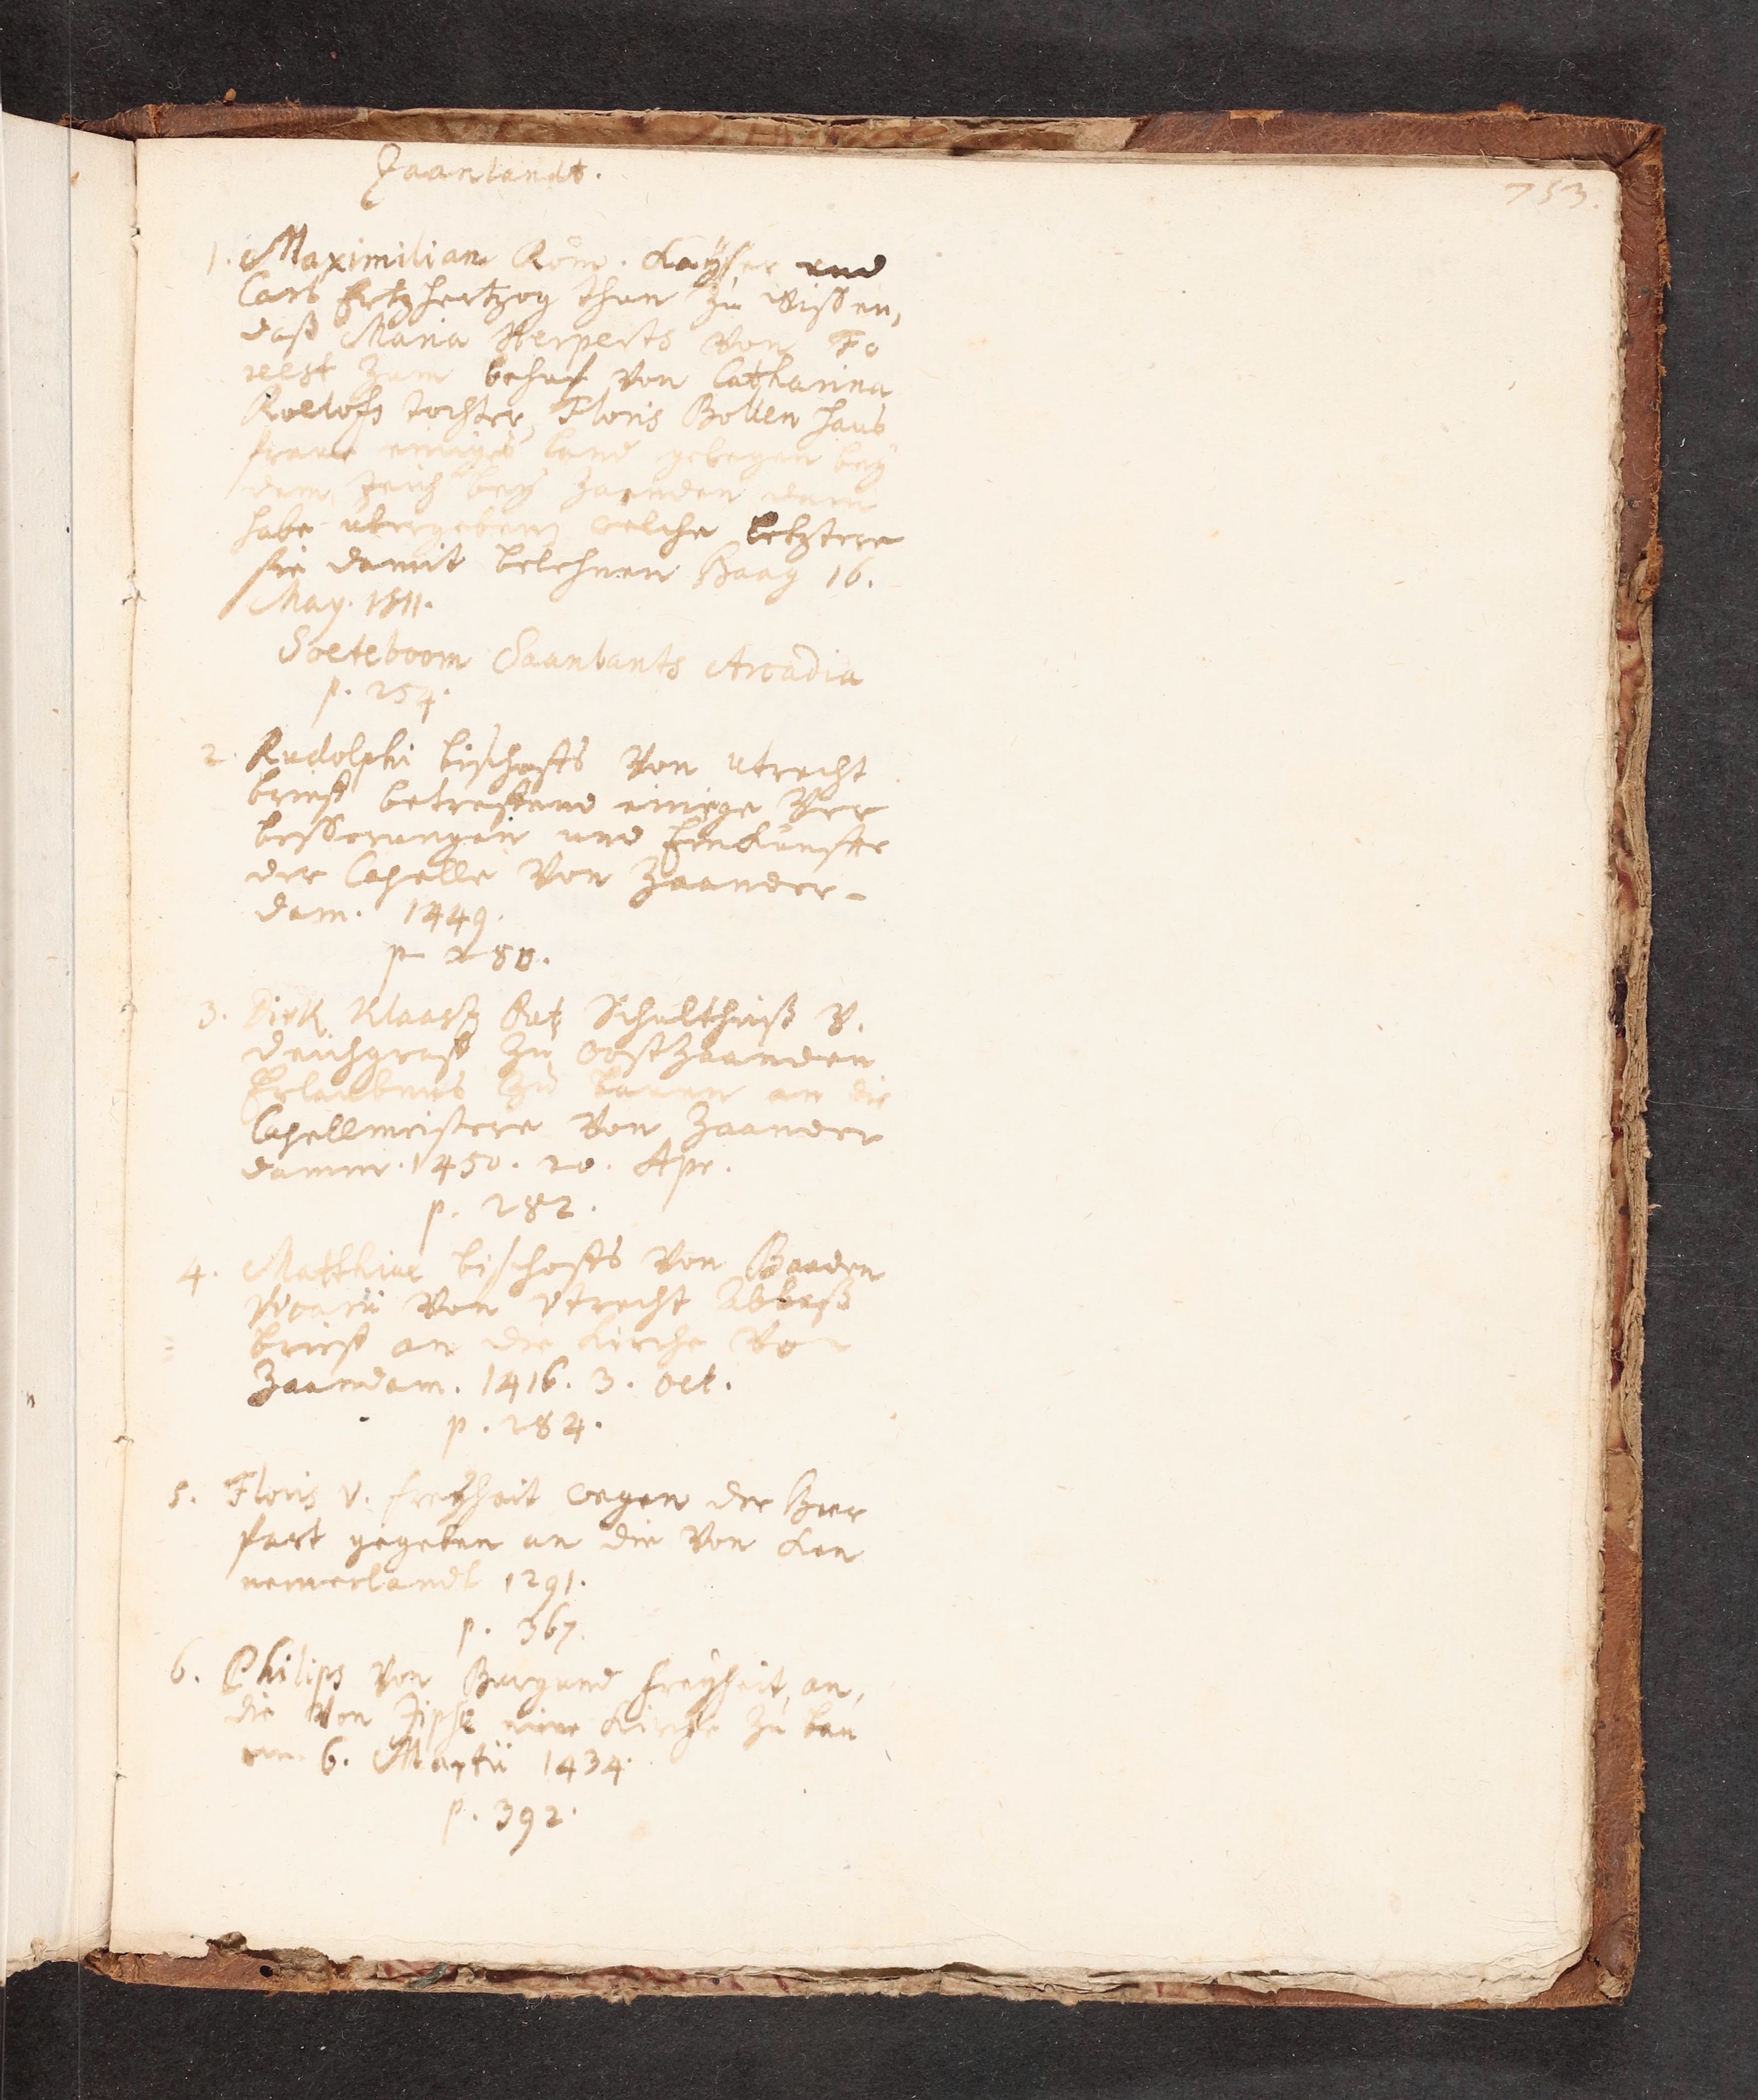 Zaanlandt.
753.
1. Maximilian Röm. Kaÿser und
Carl Ertzhertzog thun zu wissen,
daß Maria Herperts von Fo
reest zum behuf von Catharina
Roelofs tochter, Floris Bollen haus
frauw einiges land gelegen beÿ
dem Teich beÿ Zaenden dam
habe ubergeben, welche letztere
sie damit belehnen Haag 16.
May. 1511.
Soeteboom Saanlants Arcadia
p. 254.
2. Rudolphi bischoffs von Utrecht
brieff betreffend einige Ver
besserungen und Einkünffte
der Capelle von Zaander-
dam. 1449.
p. 280.
3. Dirk Klaasz Schultheiß v.
deichgraff zu Oostzaanden
Erlaubnus zu bauen an die
Capellmeistere von Zaander
damm. 1450. 20. Apr.
p. 282.
4. Matthiae bischoffs von
Vicarii von Utrecht Ablaß
brieff an die Kirche von
Zaandam. 1416. 3. Oct.
p. 284.
5. Floris V. freÿheit wegen der Heer
fart gegeben an die von Ken
nemerlandt 1291.
p. 367.
6. Philips von Burgund freÿheit, an,
die von Jisp eine Kirche zu bau
en. 6. Martii 1434.
p. 392.